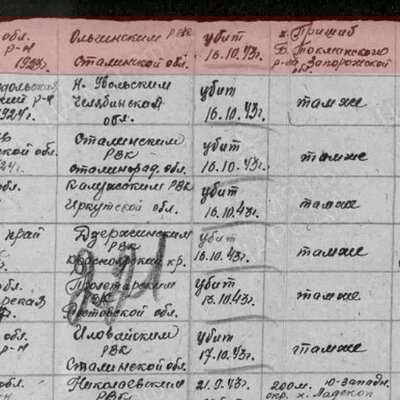 обл. Ольгинским РВК убит х. Пришиб
р-н 16.10.43г. Б. Токмакского
1923г. Сталинской обл. р-на Запорожской
обл.
Н. Увольским убит
р-н Челябинская 16.10.43г. там же
1924г. обл.
Сталинским убит
ской обл. РВК 16.10.43г. там же
сталинград. обл.
обл. РВК убит
Иркутской обл. 16.10.43г. там же
край Дзержинским убит
РВК 16.10.43г. там же
Красноярский кр.
обл. Пролетарским убит
РВК 16.10.43г. там же
Ростовской обл.
обл. Иловайским убит
р-н РВК 17.10.43г. там же
Сталинской обл.
обл. Николаевским 21.9.43г. 200м. ю-западн.
р-н РВК окр. х. Ладскоп